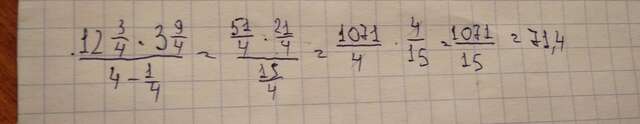 . 12 3/4 · 3 9/4 / (4 - 1/4) = (51/4 · 21/4) / (15/4) = 1071/4 · 4/15 = 1071/15 = 71,4